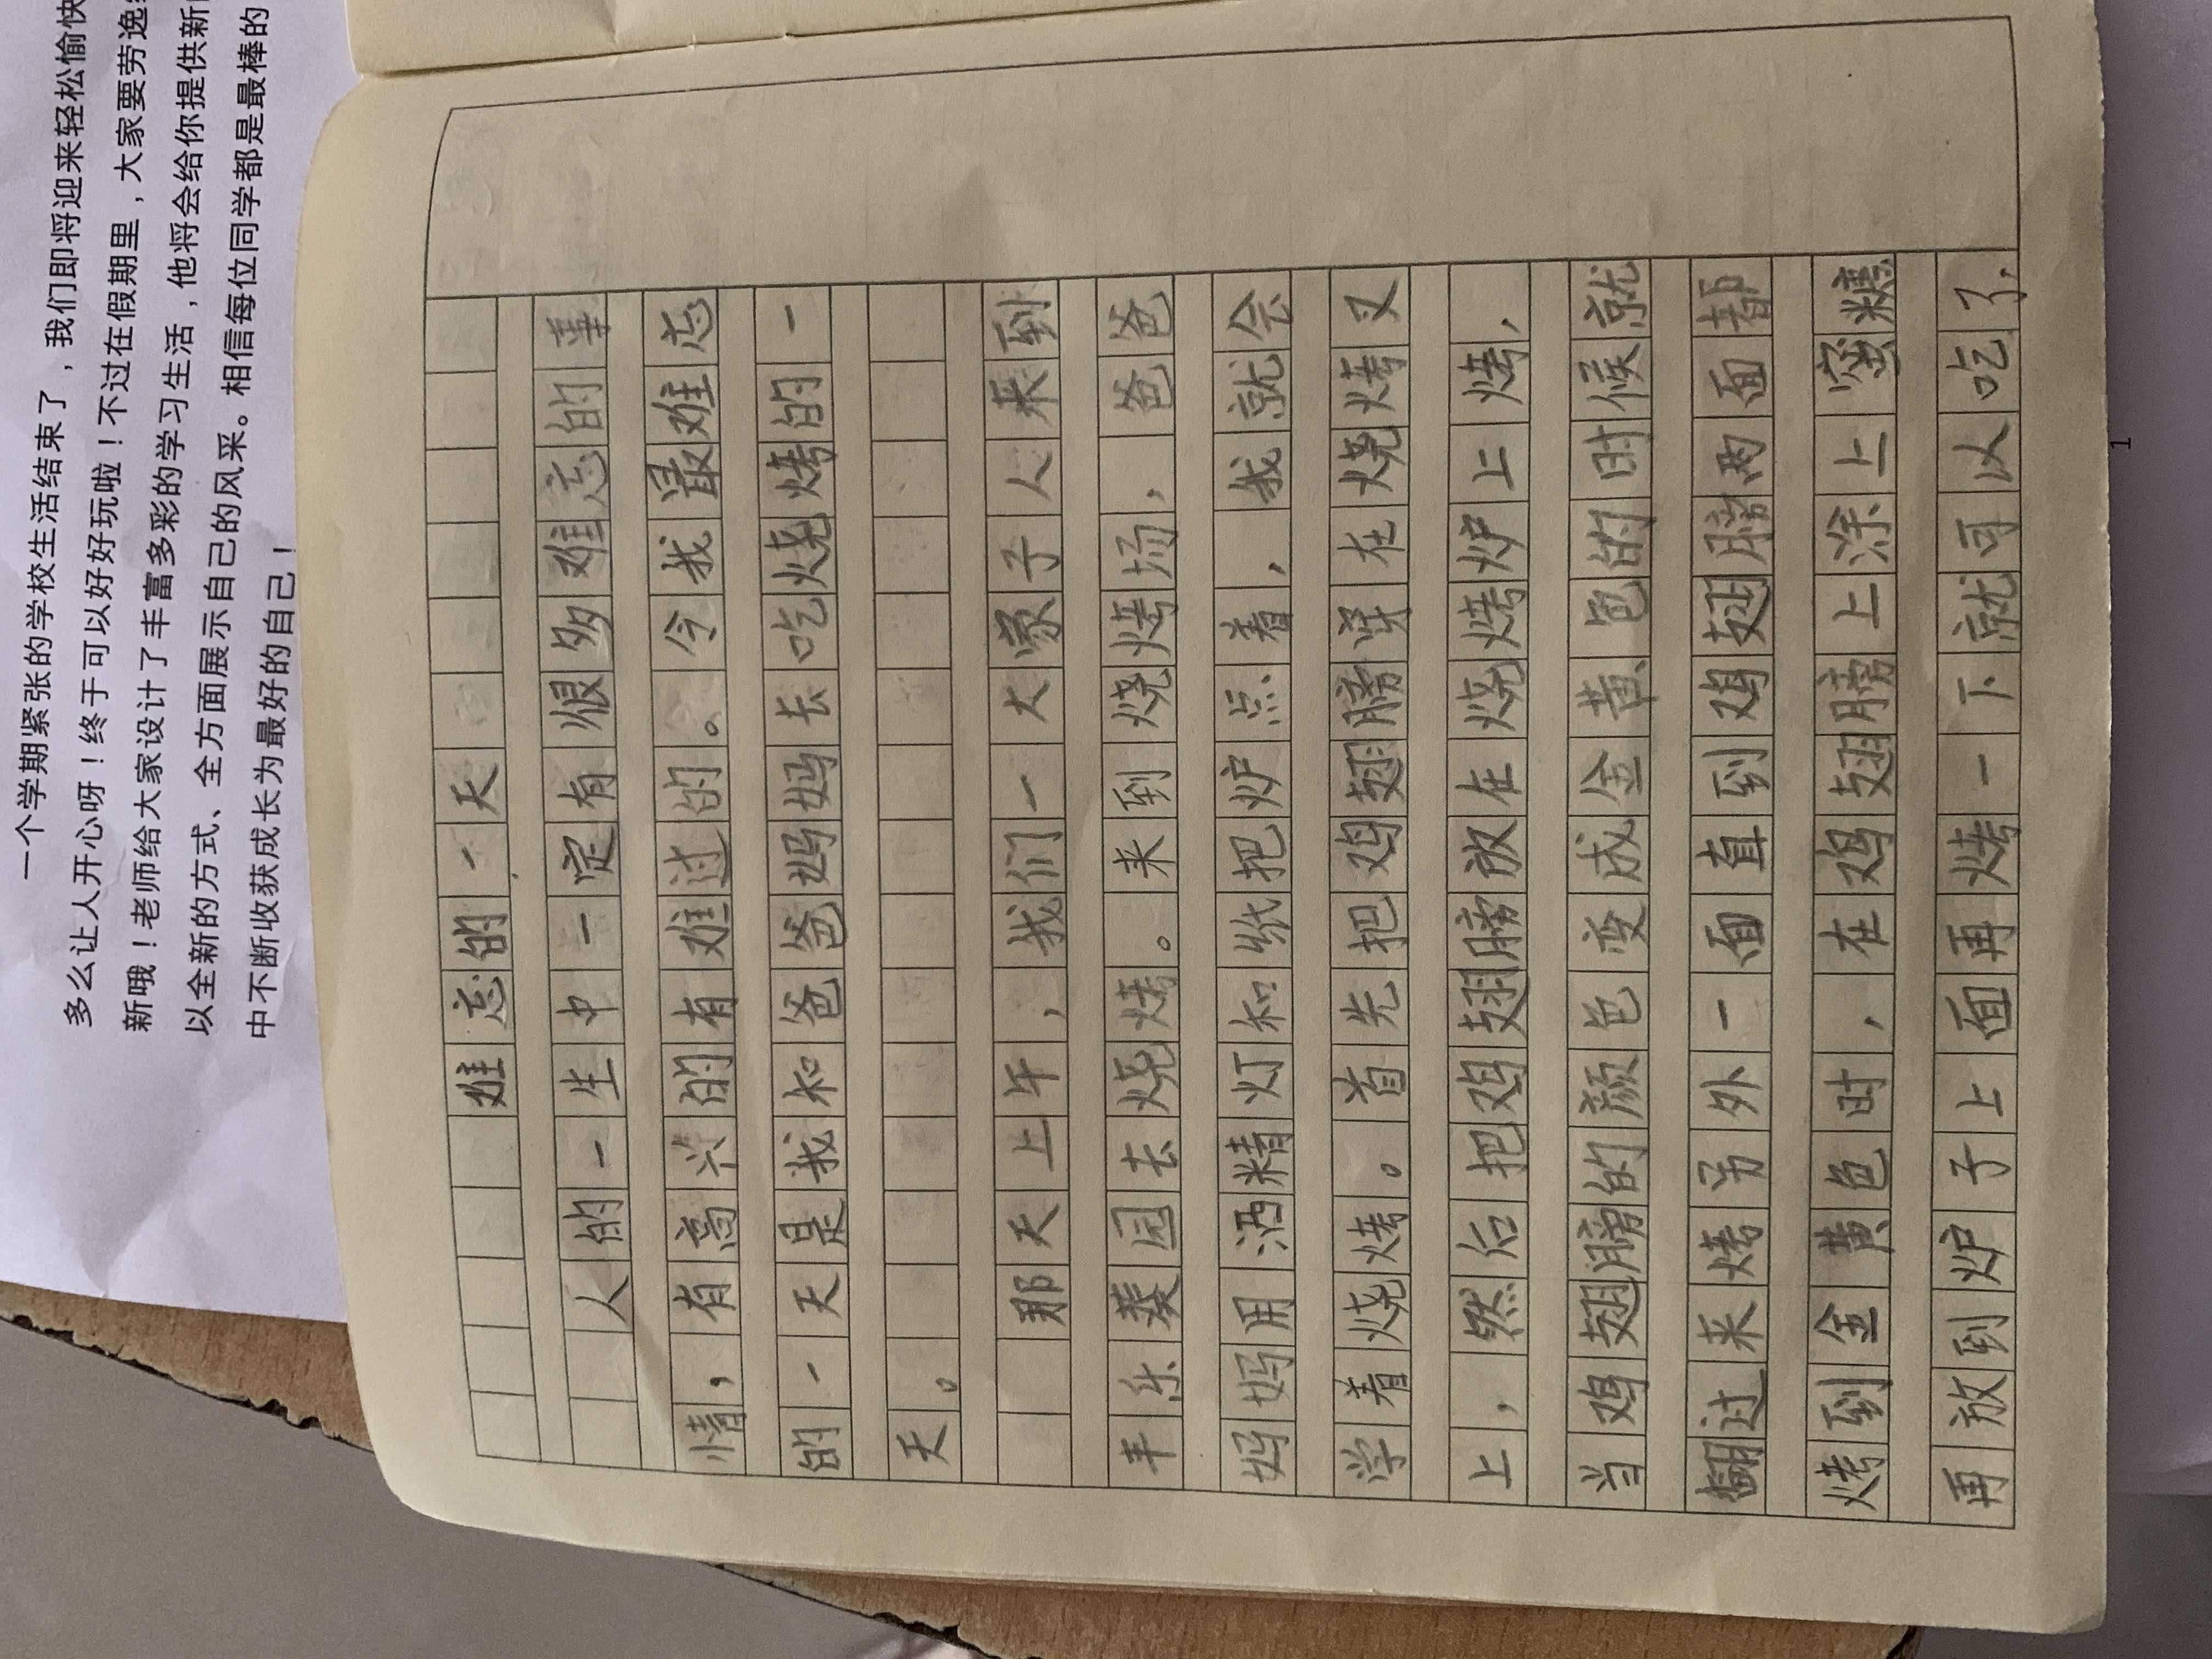 一个学期紧张的学校生活结束了，我们即将迎来轻松愉快
多么让人开心呀！终于可以好好玩啦！不过在假期里，大家要劳逸
新哦！老师给大家设计了丰富多彩的学习生活，他将会给你提供新
以全新的方式、全方面展示自己的风采。相信每位同学都是最棒的
中不断收获成长为最好的自己！
难忘的一天
人的一生中一定有很多难忘的事
情，有高兴的有难过的。令我最难忘
的一天是我和爸爸妈妈去吃烧烤的一
天。
那天上午，我们一大家子人来到
丰乐葵园去烧烤。来到烧烤场，爸爸
妈妈用酒精灯和纸把炉点着，我就会
学着烧烤。首先把鸡翅膀穿在烧烤叉
上，然后把鸡翅膀放在烧烤炉上烤，
当鸡翅膀的颜色变成金黄色的时候就
翻过来烤另外一面直到鸡翅膀两面都
烤到金黄色时，在鸡翅膀上涂上蜜糖
再放到炉子上面再烤一下就可以吃了，
1